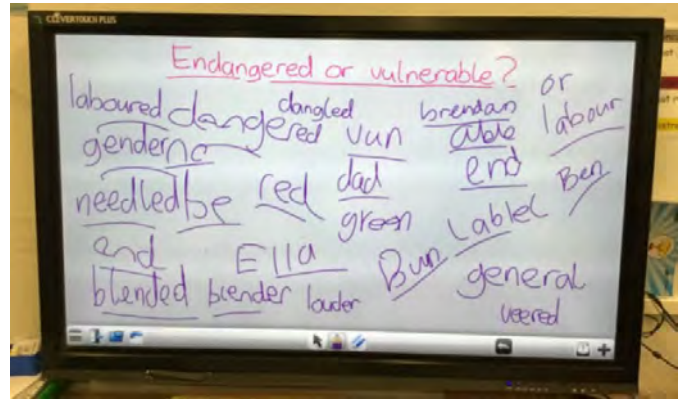 CLEVERTOUCH PLUS
Endangered or vulnerable?
laboured dangered dangled vun brendan or
gender no able labour
needled be red dad end Ben
green
end Ella Bun Lablel
blended blender louder general
veered